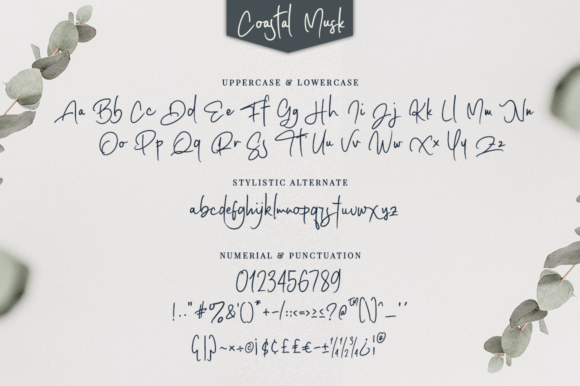 Coastal Musk
UPPERCASE & LOWERCASE
Aa Bb Cc Dd Ee Ff Gg Hh Ii Jj Kk Ll Mm Nn
Oo Pp Qq Rr Ss Tt Uu Vv Ww Xx Yy Zz
STYLISTIC ALTERNATE
abcdefghijklmnopqrstuvwxyz
NUMERIAL & PUNCTUATION
0123456789
!.."#%&'()*+-/:;<=>≥≤?@™[\]^_''
{|}~×÷©¡$¢£₤€–±¼½¾¿¡®